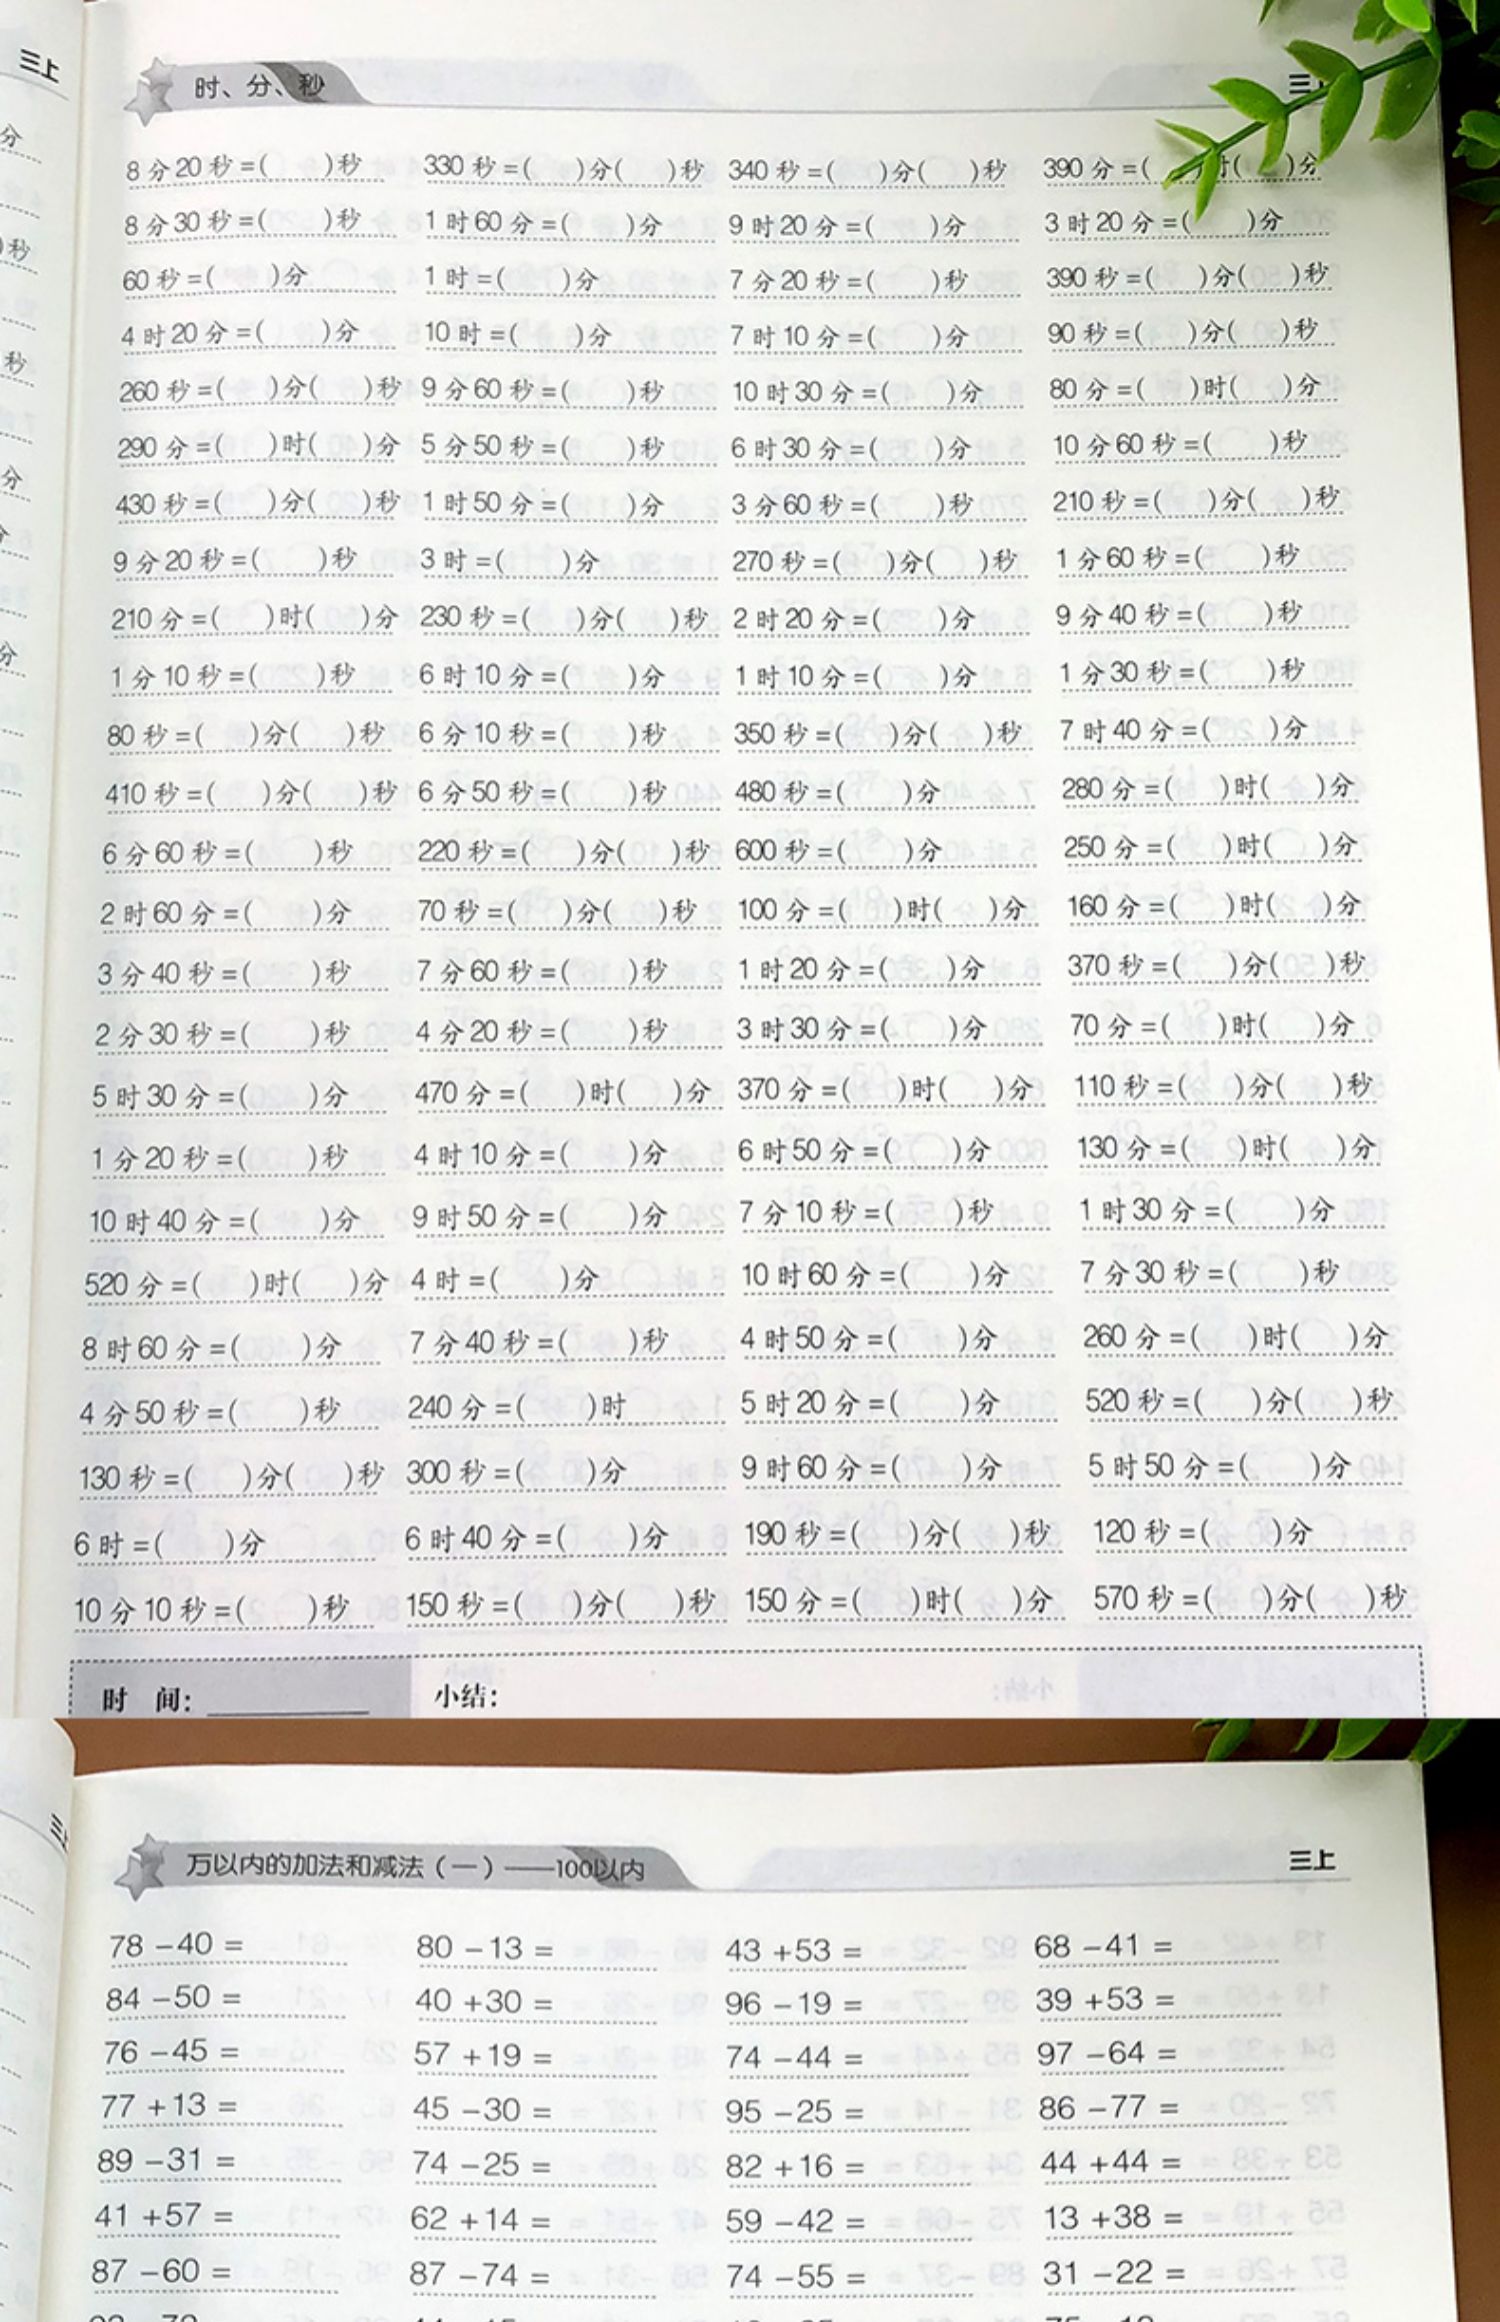 三上
时、分、秒
8分20秒=( )秒 330秒=( )分( )秒 340秒=( )分( )秒 390分=( )时( )分
8分30秒=( )秒 1时60分=( )分 9时20分=( )分 3时20分=( )分
60秒=( )分 1时=( )分 7分20秒=( )秒 390秒=( )分( )秒
4时20分=( )分 10时=( )分 7时10分=( )分 90秒=( )分( )秒
260秒=( )分( )秒 9分60秒=( )秒 10时30分=( )分 80分=( )时( )分
290分=( )时( )分 5分50秒=( )秒 6时30分=( )分 10分60秒=( )秒
430秒=( )分( )秒 1时50分=( )分 3分60秒=( )秒 210秒=( )分( )秒
9分20秒=( )秒 3时=( )分 270秒=( )分( )秒 1分60秒=( )秒
210分=( )时( )分 230秒=( )分( )秒 2时20分=( )分 9分40秒=( )秒
1分10秒=( )秒 6时10分=( )分 1时10分=( )分 1分30秒=( )秒
80秒=( )分( )秒 6分10秒=( )秒 350秒=( )分( )秒 7时40分=( )分
410秒=( )分( )秒 6分50秒=( )秒 480秒=( )分 280分=( )时( )分
6分60秒=( )秒 220秒=( )分( )秒 600秒=( )分 250分=( )时( )分
2时60分=( )分 70秒=( )分( )秒 100分=( )时( )分 160分=( )时( )分
3分40秒=( )秒 7分60秒=( )秒 1时20分=( )分 370秒=( )分( )秒
2分30秒=( )秒 4分20秒=( )秒 3时30分=( )分 70分=( )时( )分
5时30分=( )分 470分=( )时( )分 370分=( )时( )分 110秒=( )分( )秒
1分20秒=( )秒 4时10分=( )分 6时50分=( )分 130分=( )时( )分
10时40分=( )分 9时50分=( )分 7分10秒=( )秒 1时30分=( )分
520分=( )时( )分 4时=( )分 10时60分=( )分 7分30秒=( )秒
8时60分=( )分 7分40秒=( )秒 4时50分=( )分 260分=( )时( )分
4分50秒=( )秒 240分=( )时 5时20分=( )分 520秒=( )分( )秒
130秒=( )分( )秒 300秒=( )分 9时60分=( )分 5时50分=( )分
6时=( )分 6时40分=( )分 190秒=( )分( )秒 120秒=( )分
10分10秒=( )秒 150秒=( )分( )秒 150分=( )时( )分 570秒=( )分( )秒
时 间: 小结:
万以内的加法和减法(一)——100以内 三上
78-40= 80-13= 43+53= 68-41=
84-50= 40+30= 96-19= 39+53=
76-45= 57+19= 74-44= 97-64=
77+13= 45-30= 95-25= 86-77=
89-31= 74-25= 82+16= 44+44=
41+57= 62+14= 59-42= 13+38=
87-60= 87-74= 74-55= 31-22=